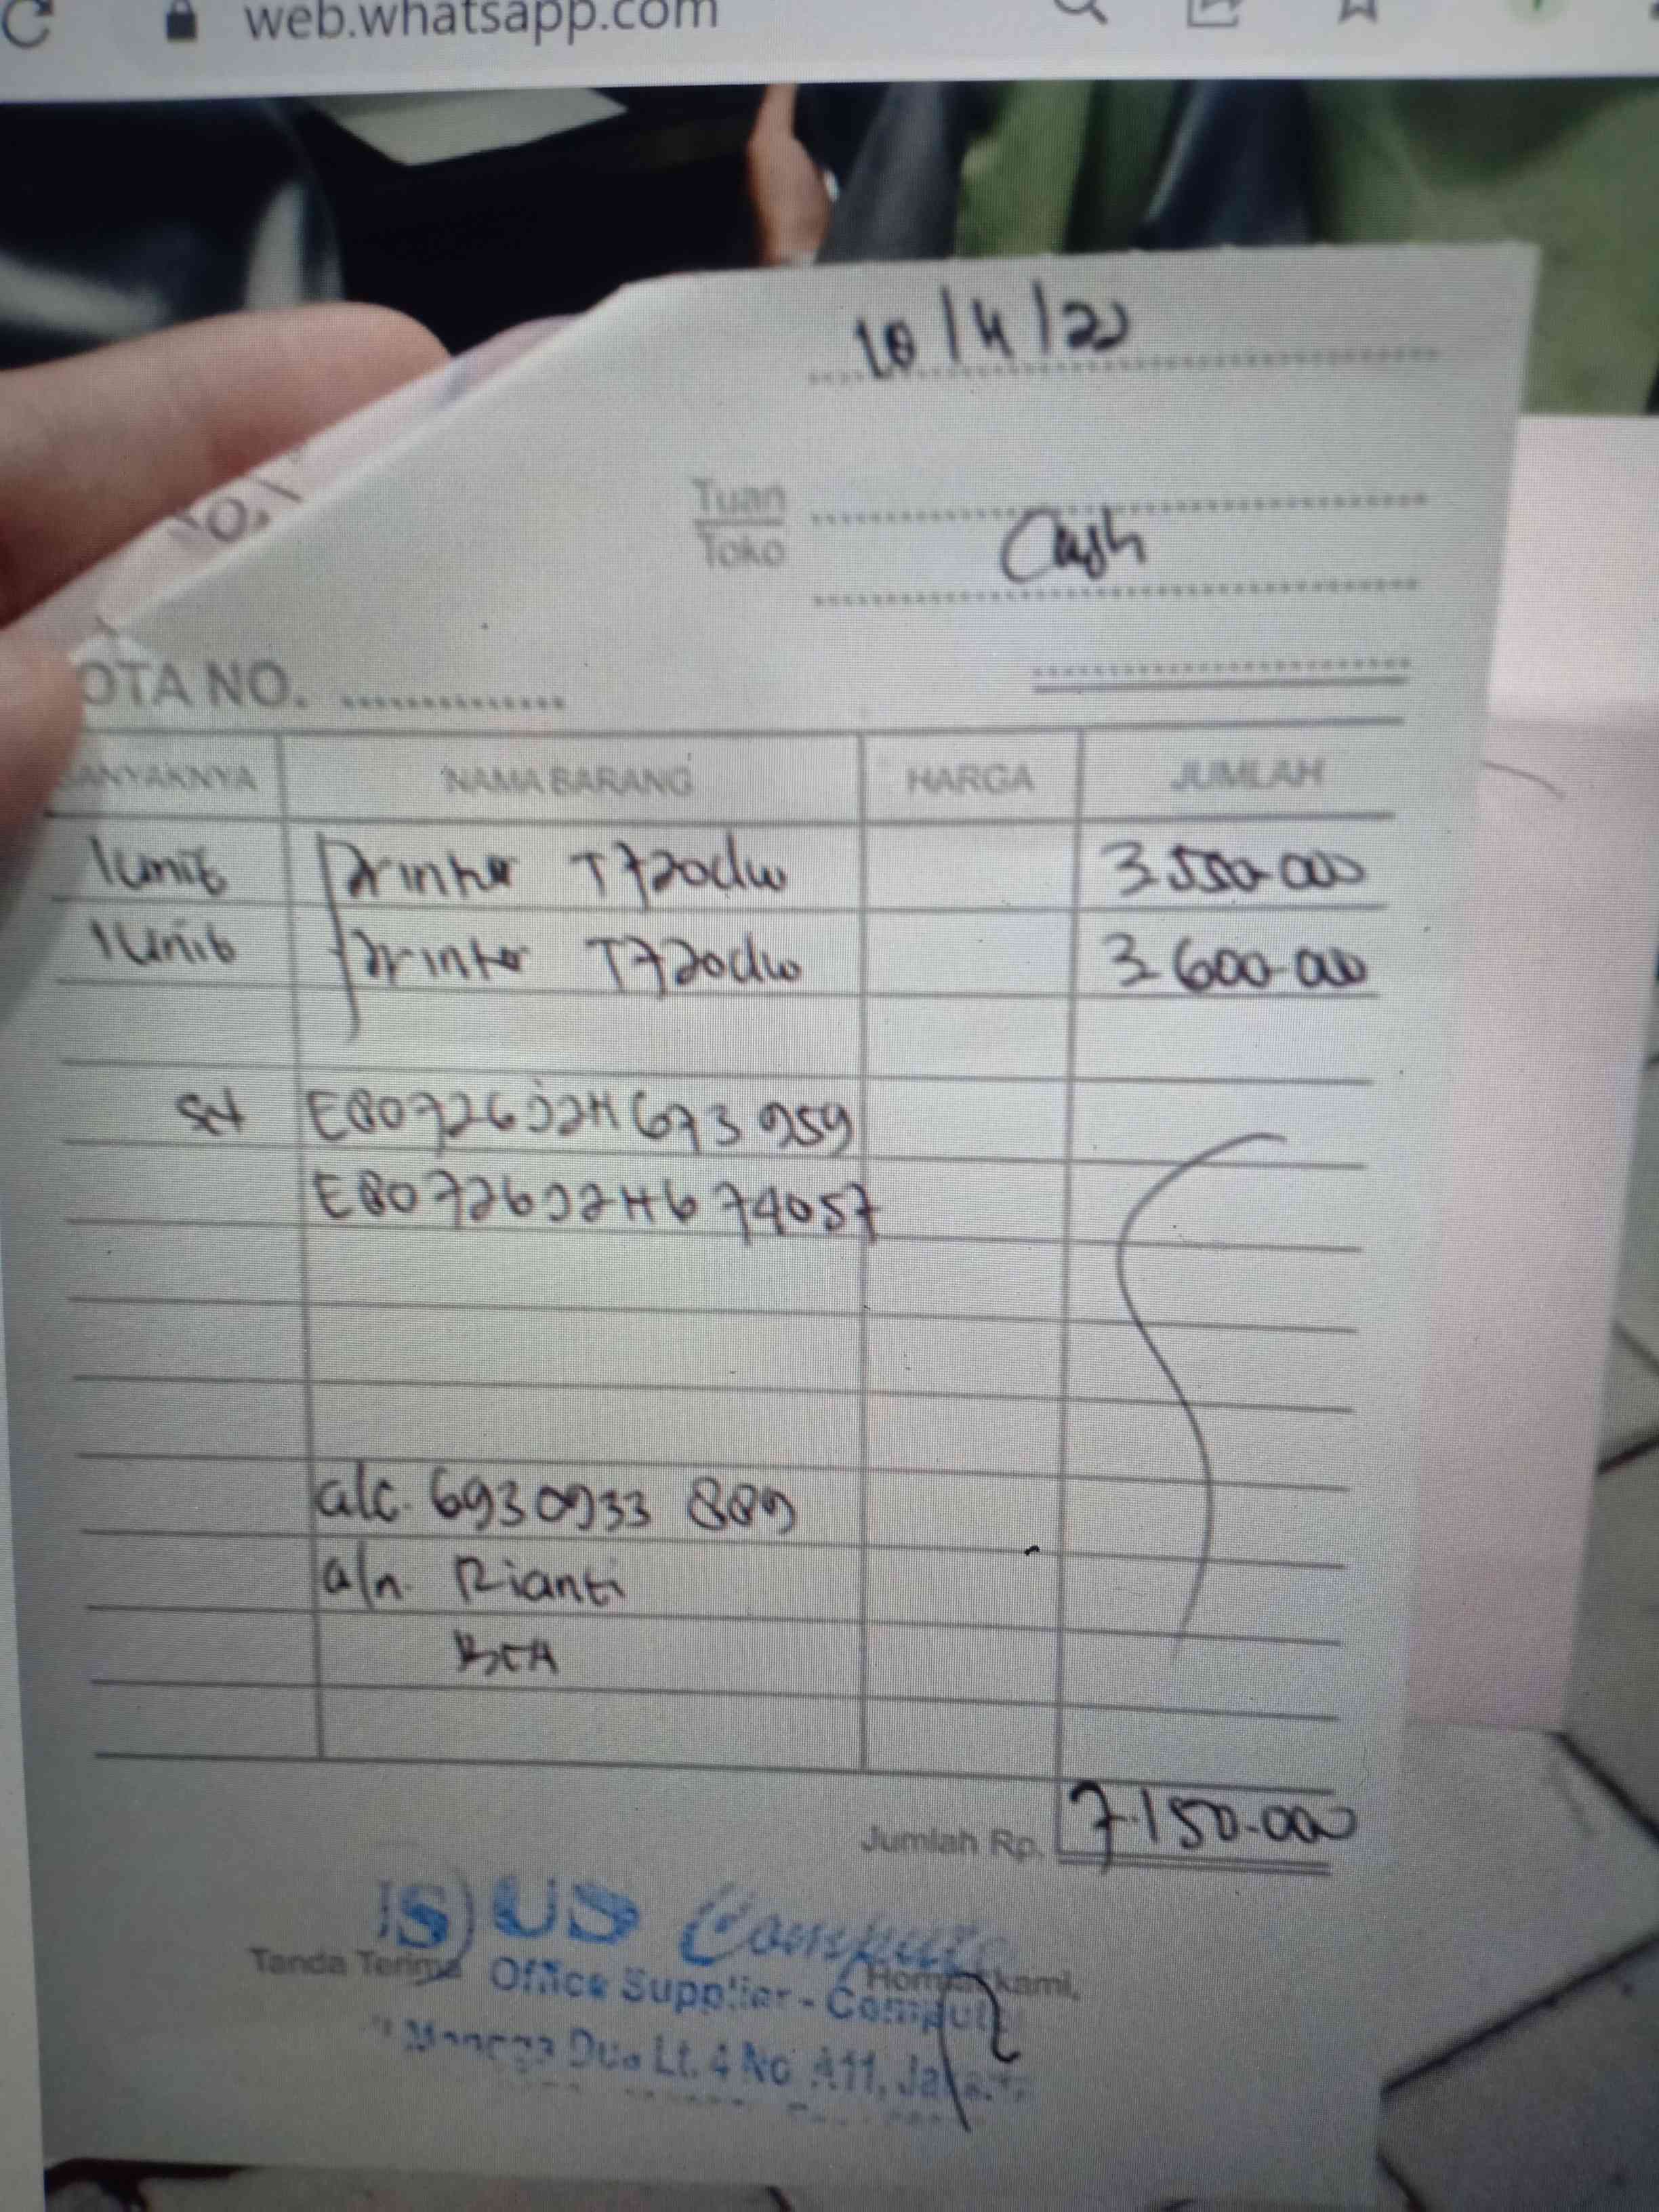 web.whatsapp.com
10/4/22
Tuan
Toko
Cash
OTA NO.
ANYAKNYA NAMA BARANG HARGA JUMLAH
1 unit Printer T720dw 3.550.000
1 unit Printer T720dw 3.600.000
SN E80726J2H673959
E80726J2H674057
a/c. 6930933 889
a/n. Rianti
BCA
Jumlah Rp. 7.150.000
US Compute
Tanda Terima Hormat kami,
Office Supplier - Compute
Mangga Dua Lt. 4 No A11, Jakarta